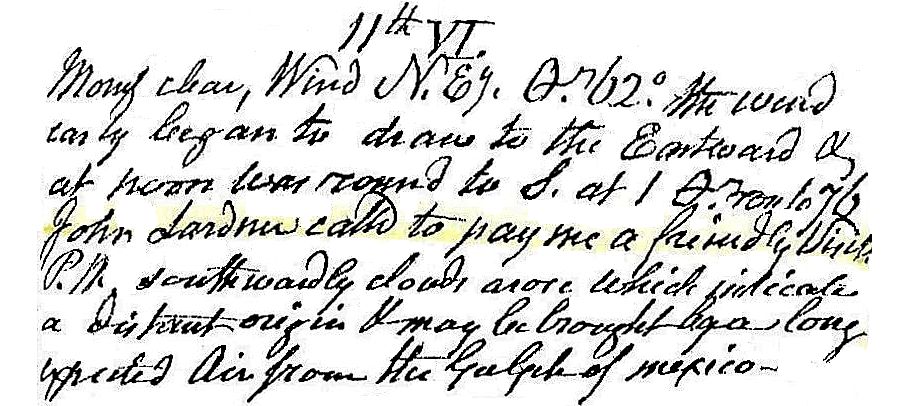 11th VI.
Morng clear, Wind N. Ey. 62° the wind
early began to draw to the Eastward &
at noon was round to S. at 1 to 76
John Lardner calld to pay me a friendly Visit
P.M. southwardly clouds arose which indicate
a distant origin & may be brought by a long
expected Air from the Gulph of mexico-